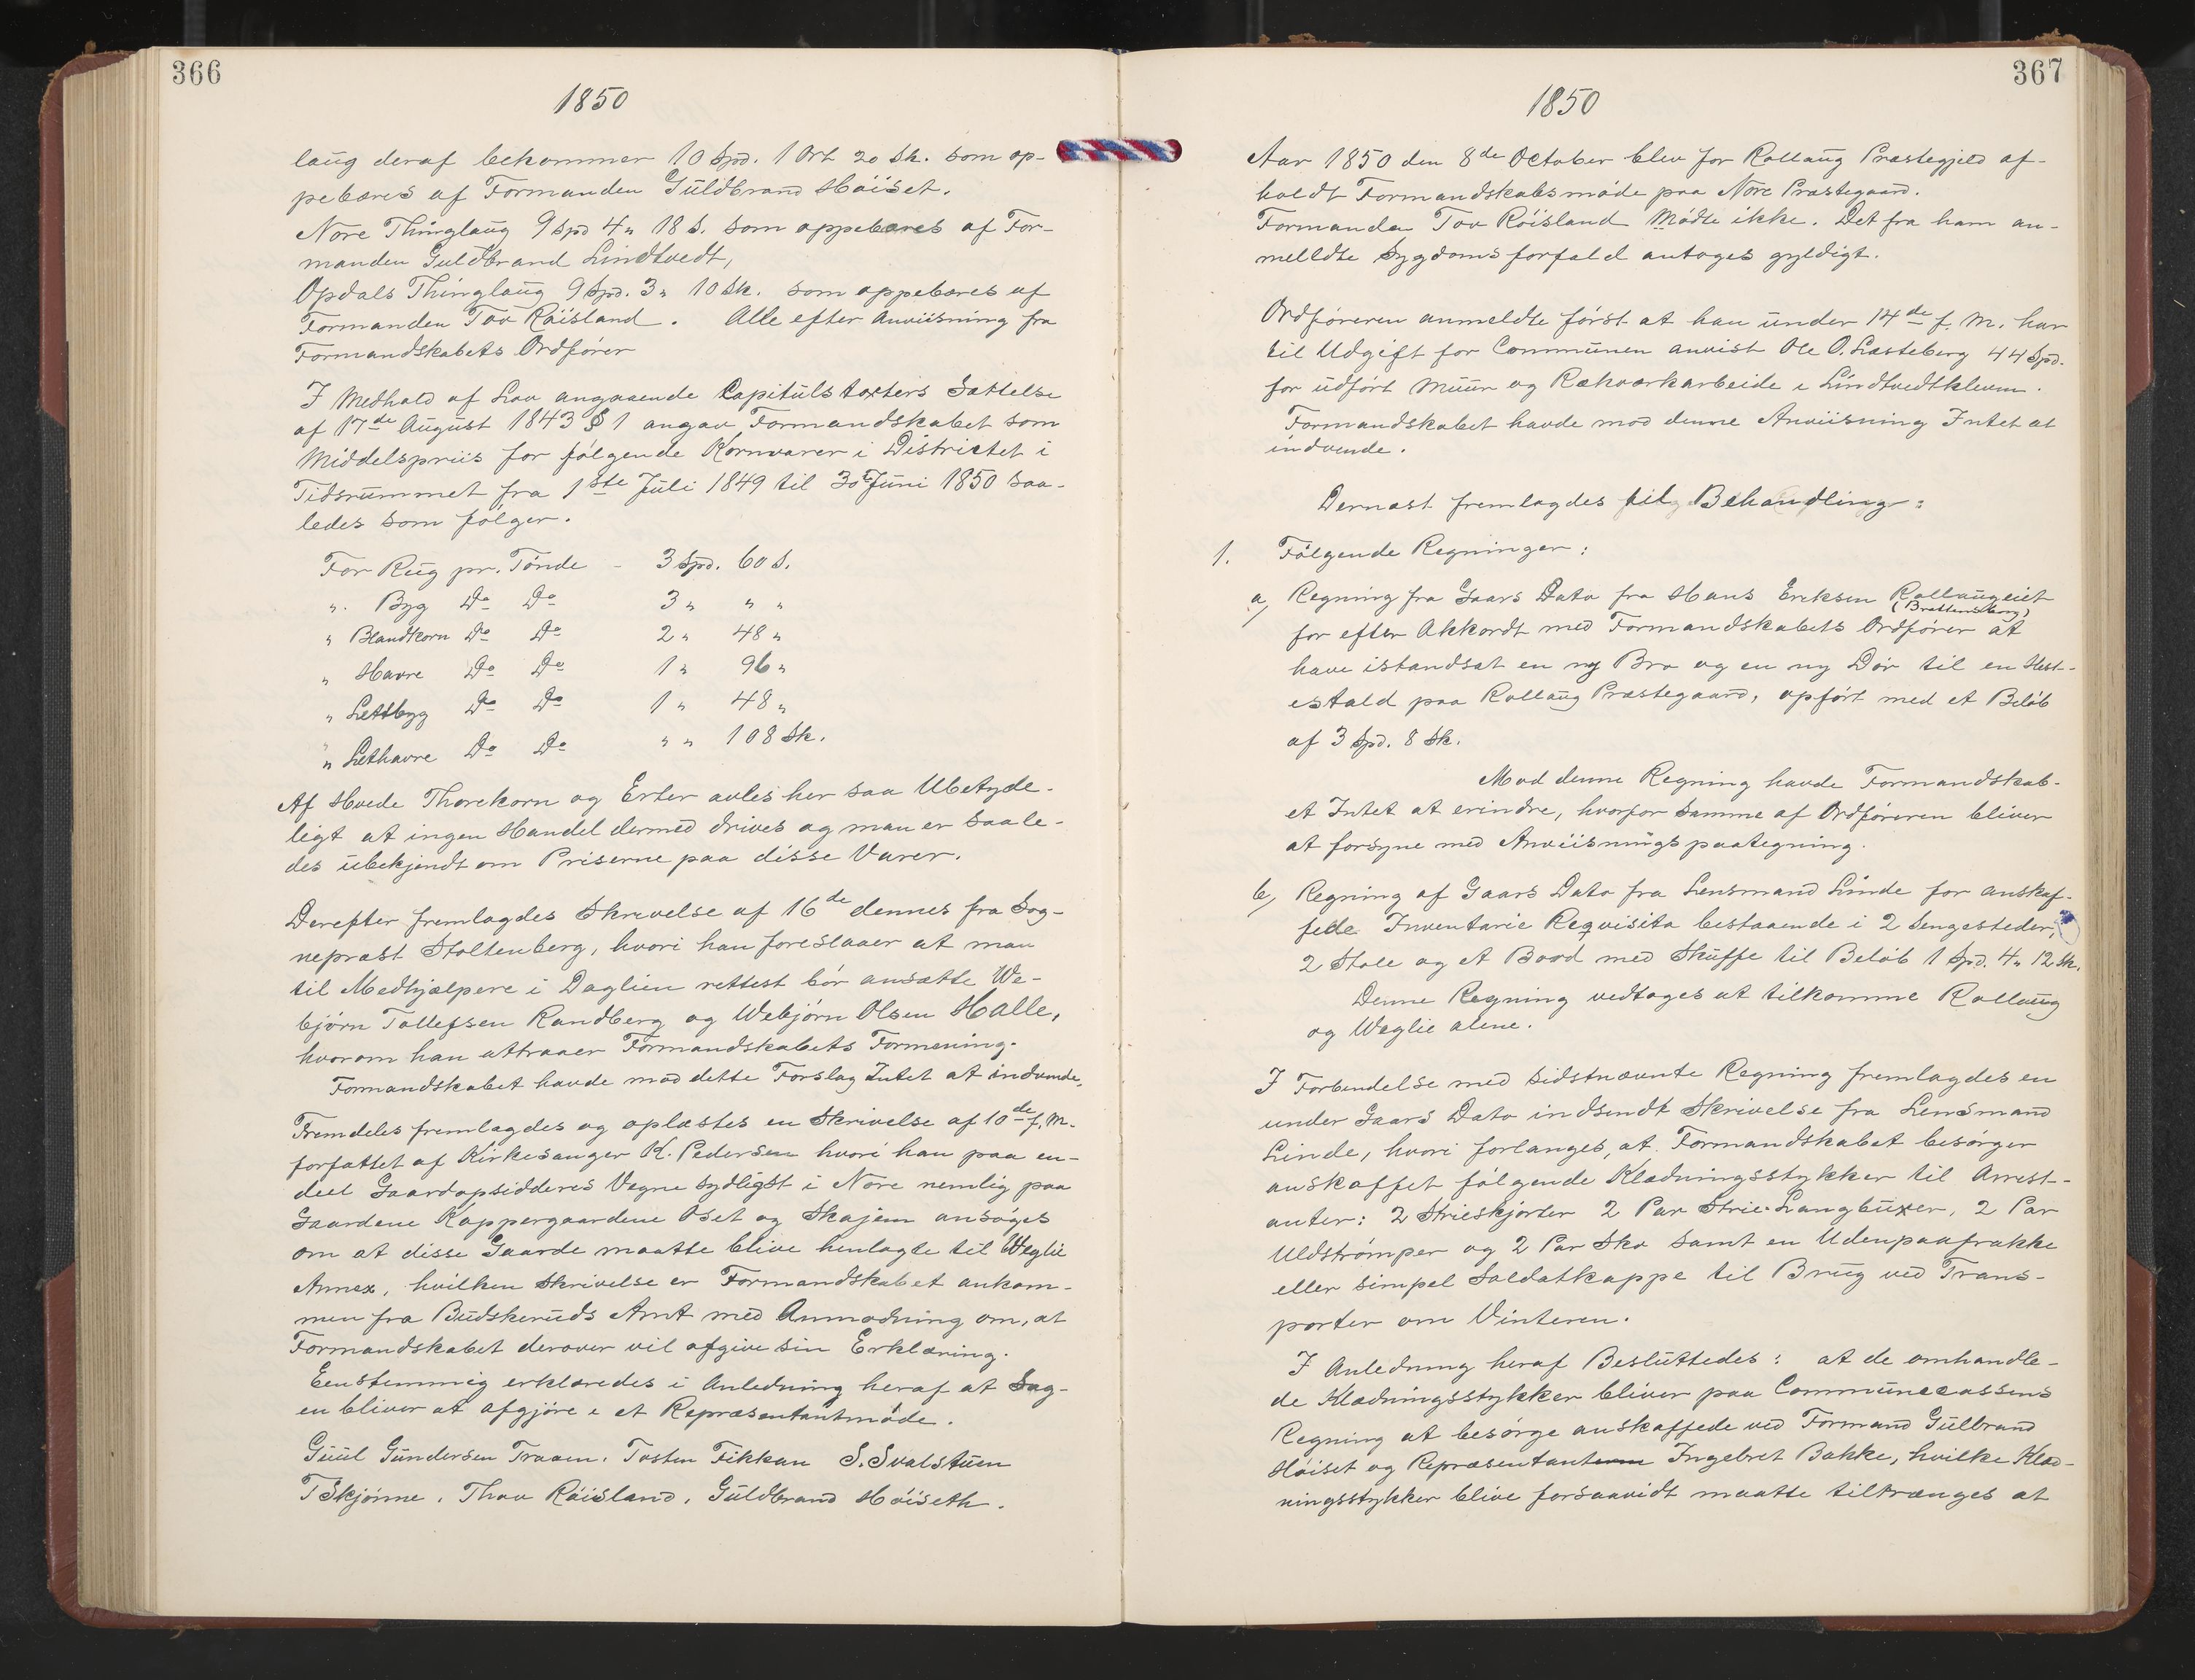 366
1850
laug deraf bekommer 10 Spd. 1 Ort 20 Sk. som op-
pebæres af Formanden Guldbrand Höiset.
Nore Thinglaug 9 Spd 4 " 18 S. som oppebæres af For-
manden Guldbrand Lindtvedt,
Opdals Thinglaug 9 Spd. 3 " 10 Sk. som oppebæres af
Formanden Tov Röisland. Alle efter Anviisning fra
Formandskabets Ordförer
I Medhold af Lov angaaende Capitulstaxters Sættelse
af 17de August 1843 § 1 angav Formandskabet som
Middelspriis for fölgende Kornvarer i Districtet i
Tidsrummet fra 1ste Juli 1849 til 30te Juni 1850 saa-
ledes som fölger.
For Rug pr. Tönde - 3 Spd. 60 S.
". Byg Do Do 3 " " "
" Blandkorn Do Do 2 " 48 "
" Havre Do Do 1 " 96 "
" Lettbyg Do Do 1 " 48 "
" Lethavre Do Do " " 108 Sk.
Af Hvede Thorekorn og Erter avles her saa Ubetyde-
ligt at ingen Handel dermed drives og man er saale-
des ubekjendt om Priserne paa disse Varer.
Derefter fremlagdes Skrivelse af 16de dennes fra Sog-
nepræst Stoltenberg, hvori han foreslaaer at man
til Medhjælpere i Daglien rettest bör ansætte We-
björn Tollefsen Randberg og Webjörn Olsen Halle,
hvorom han attraaer Formandskabets Formening.
Formandskabet havde mod dette Forslag Intet at indvende.
Fremdeles fremlagdes og oplæstes en Skrivelse af 10de f. M.
forfattet af Kirkesanger K. Pedersen hvori han paa en-
deel Gaardopsidderes Vegne sydligst i Nore nemlig paa
Gaardene Koppergaardene Oset og Skajem ansöges
om at disse Gaarde maatte blive henlagte til Weglie
Annex, hvilken Skrivelse er Formandskabet ankom-
men fra Budskeruds Amt med Anmodning om, at
Formandskabet derover vil afgive sin Erklæring.
Eenstemmig erklæredes i Anledning heraf at Sag-
en bliver at afgjöre i et Repræsentantmöde.
Guul Gundersen Traaen. Tosten Fikkan S. Svalstuen
T Skjönne. Thov Röisland. Guldbrand Höiseth.
367
1850
Aar 1850 den 8de October blev for Rollaug Præstegjeld af-
holdt Formandskabsmöde paa Nore Præstegaard.
Formanden Tov Röisland Mödte ikke. Det fra ham an-
melldte Sygdomsforfald antoges gyldigt.
Ordföreren anmeldte först at han under 14de f. M. har
til Udgift for Communen anvist Ole O. Læsteberg 44 Spd.
for udfört Muur og Rækværkarbeide i Lindtvedtkleven.
Formandskabet havde mod denne Anviisning Intet at
indvende.
Dernæst fremlagdes til Behandling:
1. Fölgende Regninger:
a) Regning fra Gaars Dato fra Hans Eriksen Rollaugeiet
(Brattensberg)
for efter Akkordt med Formandskabets Ordförer at
have istandsat en ny Bro og en ny Dör til en Hest-
estald paa Rollaug Præstegaard, opfört med et Belöb
af 3 Spd. 8 Sk.
Mod denne Regning havde Formandskab-
et Intet at erindre, hvorfor samme af Ordföreren bliver
at forsyne med Anviisningspaategning.
b) Regning af Gaars Dato fra Lensmand Linde for anskaf-
fede Inventarie Reqvisita bestaaende i 2 Sengesteder,
2 Stole og et Bord med Skuffe til Belöb 1 Spd. 4 " 12 Sk.
Denne Regning vedtoges at tilkomme Rollaug
og Weglie alene.
I Forbindelse med sidstnævnte Regning fremlagdes en
under Gaars Dato indsendt Skrivelse fra Lensmand
Linde, hvori forlanges, at Formandskabet besörger
anskaffet fölgende Klædningsstykker til Arrest-
anter: 2 Strieskjorter 2 Par Strie-Langbuxer, 2 Par
Uldströmper og 2 Par Sko samt en Udenpaafrakke
eller simpel Soldatkappe til Brug ved Trans-
porter om Vinteren.
I Anledning heraf Besluttedes: at de omhandle-
de Klædningsstykker bliver paa Communecassens
Regning at besörge anskaffede ved Formand Gulbrand
Höiset og Repræsentant Ingebret Bakke, hvilke Klæd-
ningsstykker blive forsaavidt maatte tiltrænges at